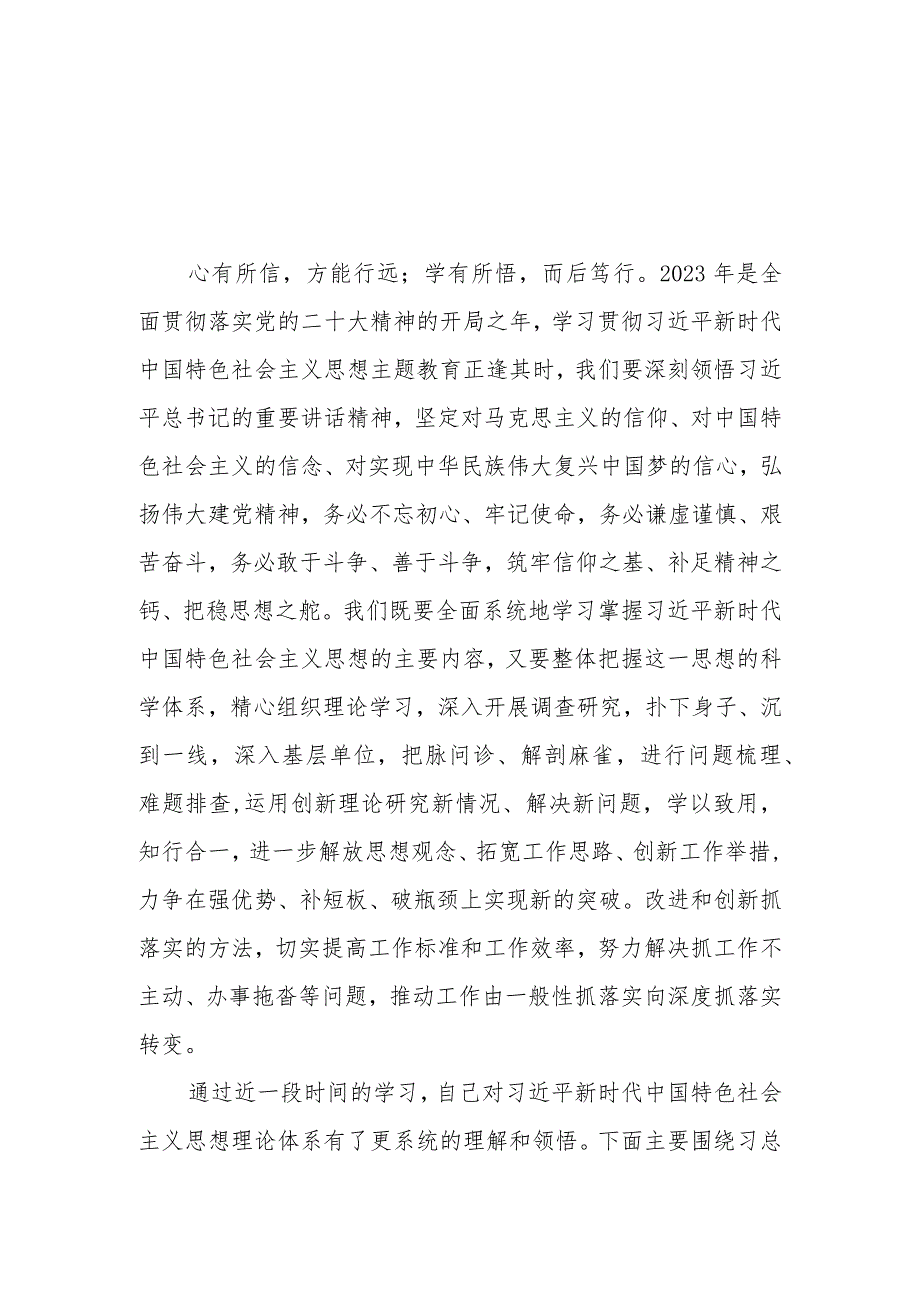 心有所信，方能行远；学有所悟，而后笃行。2023 年是全
面贯彻落实党的二十大精神的开局之年，学习贯彻习近平新时代
中国特色社会主义思想主题教育正逢其时，我们要深刻领悟习近
平总书记的重要讲话精神，坚定对马克思主义的信仰、对中国特
色社会主义的信念、对实现中华民族伟大复兴中国梦的信心，弘
扬伟大建党精神，务必不忘初心、牢记使命，务必谦虚谨慎、艰
苦奋斗，务必敢于斗争、善于斗争，筑牢信仰之基、补足精神之
钙、把稳思想之舵。我们既要全面系统地学习掌握习近平新时代
中国特色社会主义思想的主要内容，又要整体把握这一思想的科
学体系，精心组织理论学习，深入开展调查研究，扑下身子、沉
到一线，深入基层单位，把脉问诊、解剖麻雀，进行问题梳理、
难题排查,运用创新理论研究新情况、解决新问题，学以致用，
知行合一，进一步解放思想观念、拓宽工作思路、创新工作举措，
力争在强优势、补短板、破瓶颈上实现新的突破。改进和创新抓
落实的方法，切实提高工作标准和工作效率，努力解决抓工作不
主动、办事拖沓等问题，推动工作由一般性抓落实向深度抓落实
转变。
通过近一段时间的学习，自己对习近平新时代中国特色社会
主义思想理论体系有了更系统的理解和领悟。下面主要围绕习总